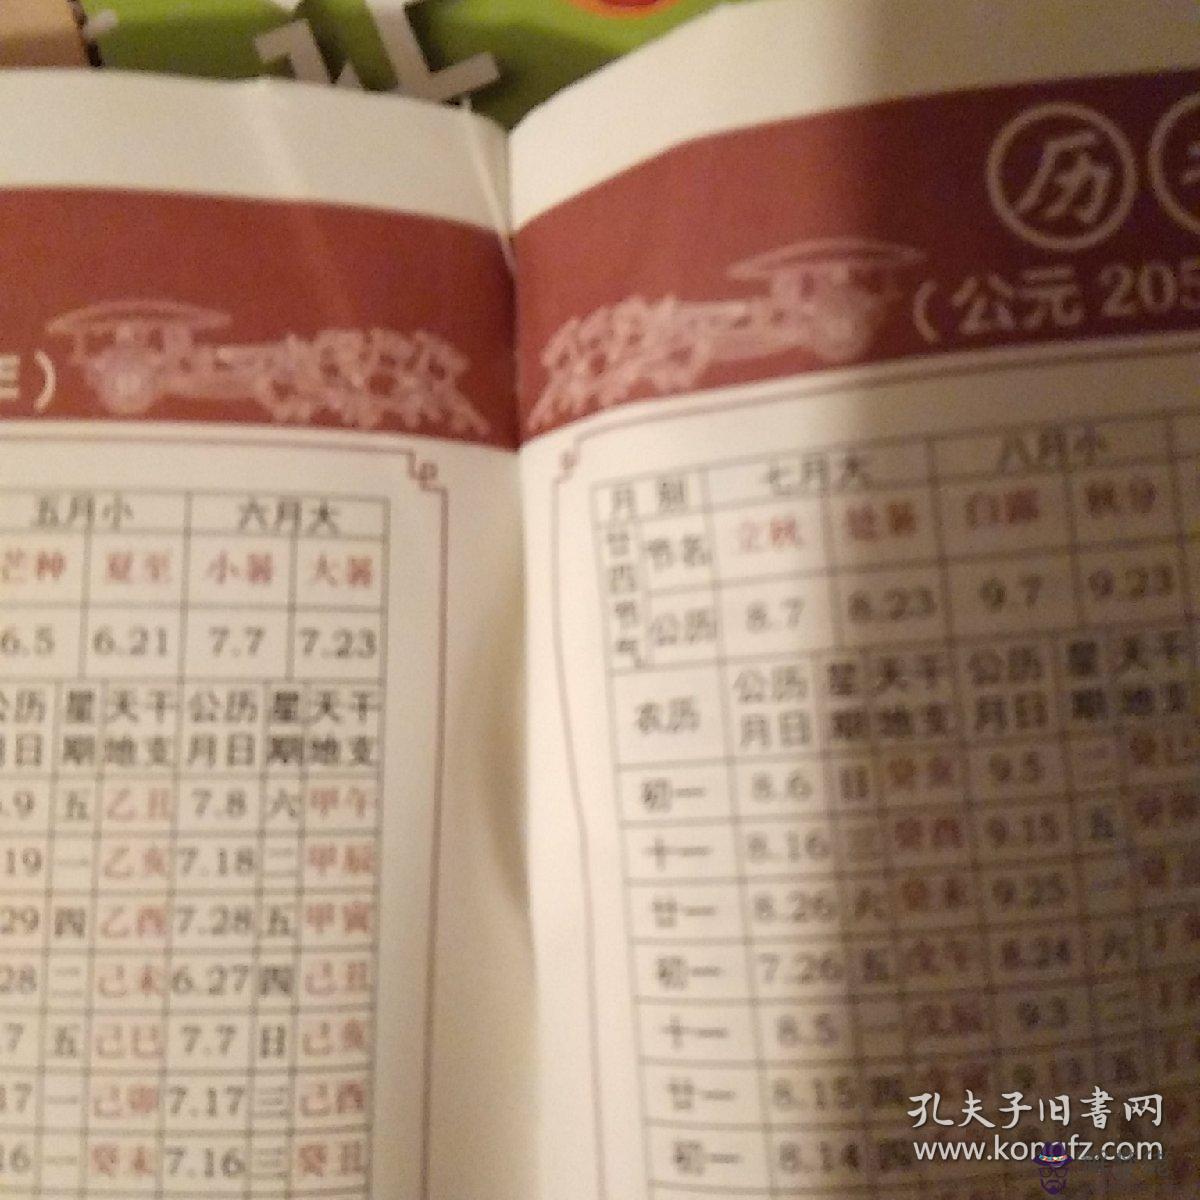 历
（公元 205
年）
五月小 六月大
芒种 夏至 小暑 大暑
6.5 6.21 7.7 7.23
公历 星 天干 公历 星 天干
月日 期 地支 月日 期 地支
.9 五 乙丑 7.8 六 甲午
19 一 乙亥 7.18 二 甲辰
29 四 乙酉 7.28 五 甲寅
28 二 己未 6.27 四 己丑
.7 五 己巳 7.7 日 己亥
17 一 己卯 7.17 三 己酉
16 一 癸未 7.16 三 癸丑
月别 七月大 八月小
廿四节气 节名 立秋 处暑 白露 秋分
公历 8.7 8.23 9.7 9.23
农历 公历 星 天干 公历 星 天干
月日 期 地支 月日 期 地支
初一 8.6 日 癸亥 9.5 二 癸巳
十一 8.16 三 癸酉 9.15 五 癸卯
廿一 8.26 六 癸未 9.25 一 癸丑
初一 7.26 五 戊午 8.24 六 丁
十一 8.5 一 戊辰 9.3 二 丁
廿一 8.15 四 戊寅 9.13 五
初一 8.14 四
孔夫子旧書网
www.kongfz.com